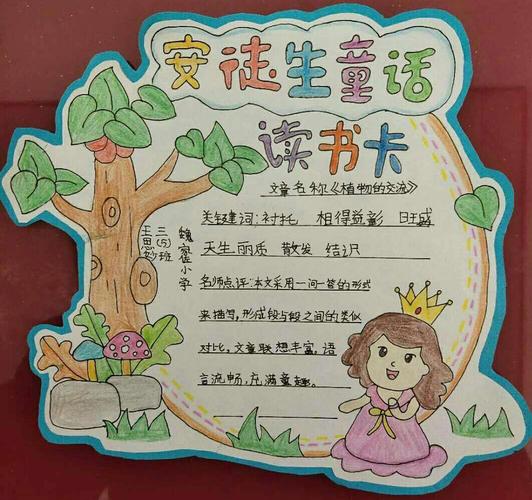 安徒生童话
读书卡
文章名称《植物的交流》
关键词:衬托 相得益彰 旺盛
天生丽质 散发 结识
名师点评:本文采用一问一答的形式
来描写,形成段与段之间的类似
对比,文章联想丰富,语
言流畅,充满童趣。
魏家翟小学
三(5)班
王思妙